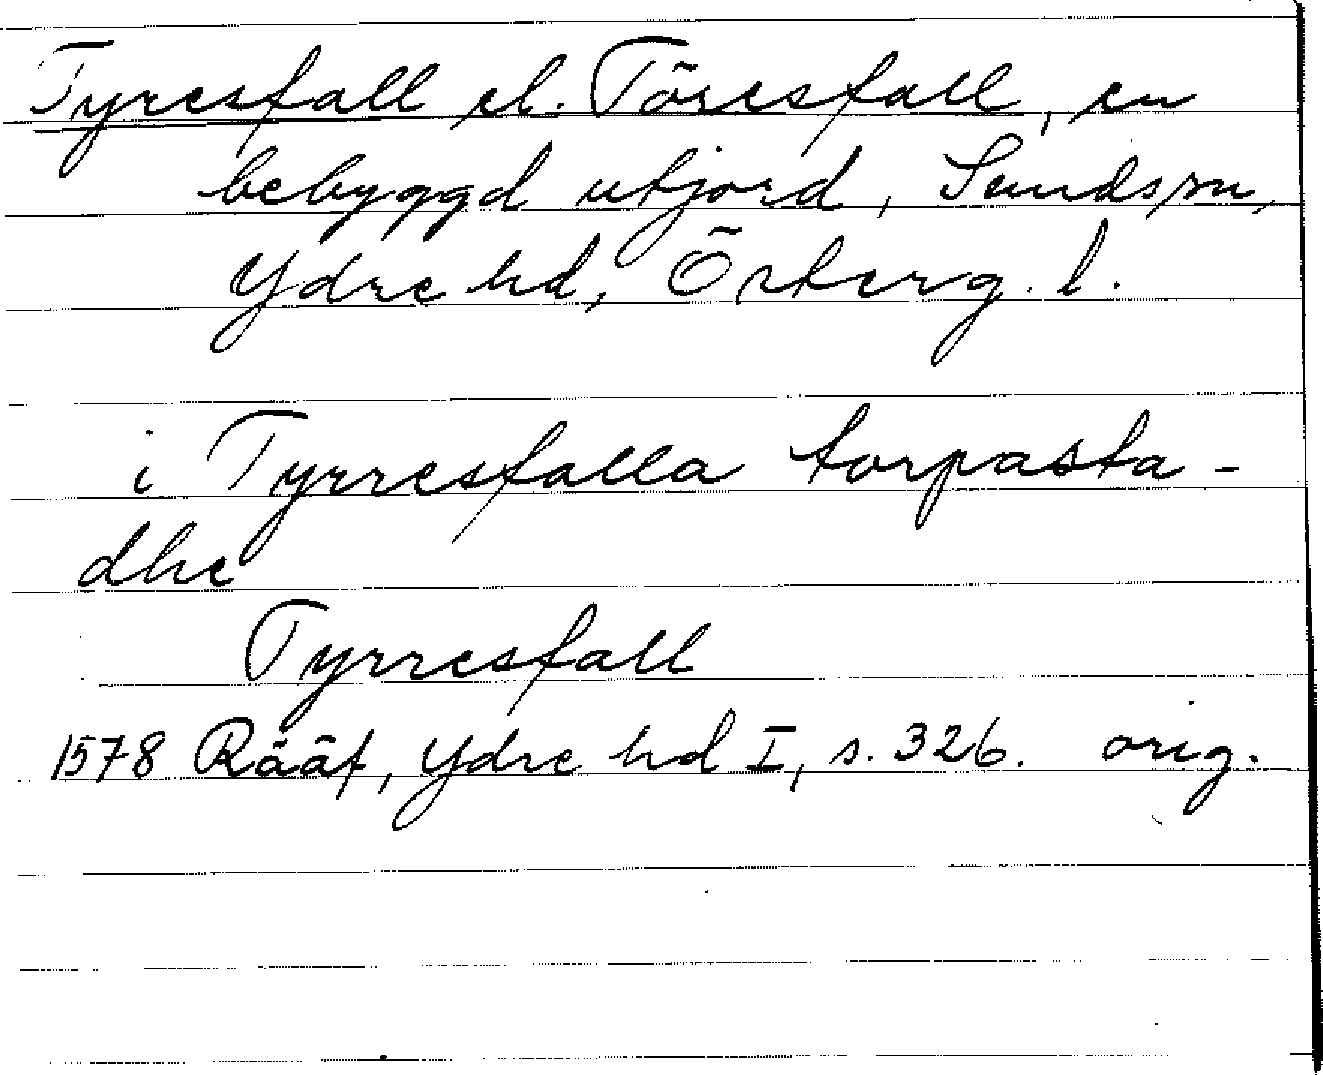 Tyresfall el. Töresfall, en
bebyggd utjord, Sunds sn,
Ydre hd, Österg. l.
i Tyrresfalla torpasta-
dhe
Tyrresfall
1578 Rääf, Ydre hd I, s. 326. orig.